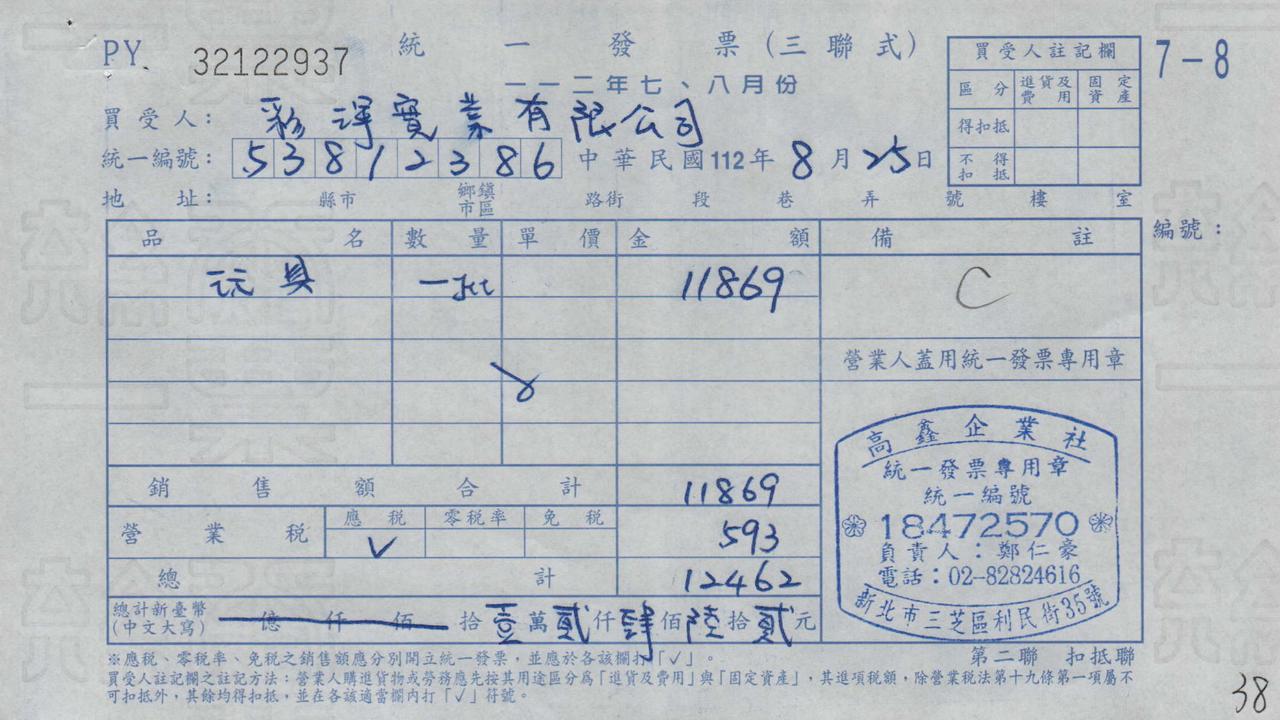 PY. 32122937 統一發票(三聯式)
一一二年七、八月份
7-8
買受人註記欄
區分 進貨及費用 固定資產
得扣抵
不得扣抵
買受人: 彩渾實業有限公司
統一編號: 53812386 中華民國112年8月25日
地址: 縣市 鄉鎮市區 路街 段 巷 弄 號 樓 室
編號:
品名 數量 單價 金額 備註
玩具 一批 11869 C
營業人蓋用統一發票專用章
銷售額合計 11869
營業稅 應稅 零稅率 免稅 593
V
總計 12462
總計新臺幣(中文大寫) 億仟佰拾壹萬貳仟肆佰陸拾貳元
高鑫企業社
統一發票專用章
統一編號
18472570
負責人:鄭仁豪
電話:02-82824616
新北市三芝區利民街35號
※應稅、零稅率、免稅之銷售額應分別開立統一發票,並應於各該欄打「✓」。
第二聯 扣抵聯
買受人註記欄之註記方法:營業人購進貨物或勞務應先按其用途區分為「進貨及費用」與「固定資產」,其進項稅額,除營業稅法第十九條第一項屬不
可扣抵外,其餘均得扣抵,並在各該適當欄內打「✓」符號。
38